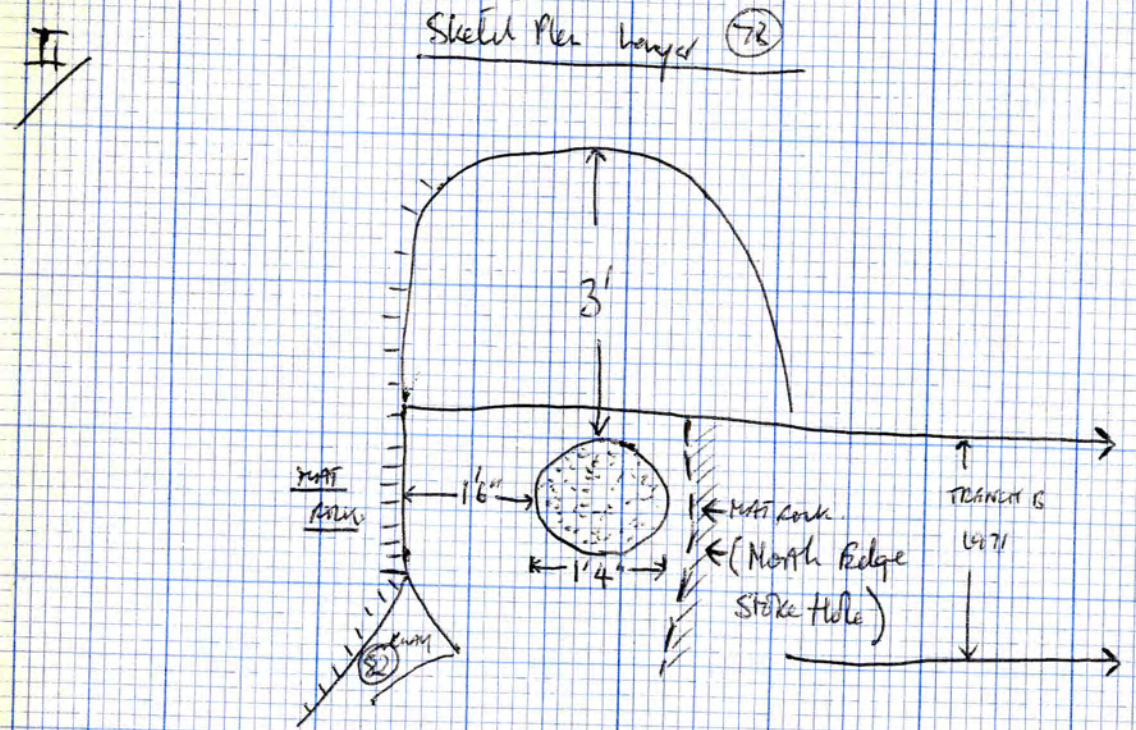 II
Sketch Plan Layer 7B
3'
NAT
ROCK
1'6"
1'4"
NAT ROCK.
(North Edge
Stoke Hole)
TRENCH B
1971